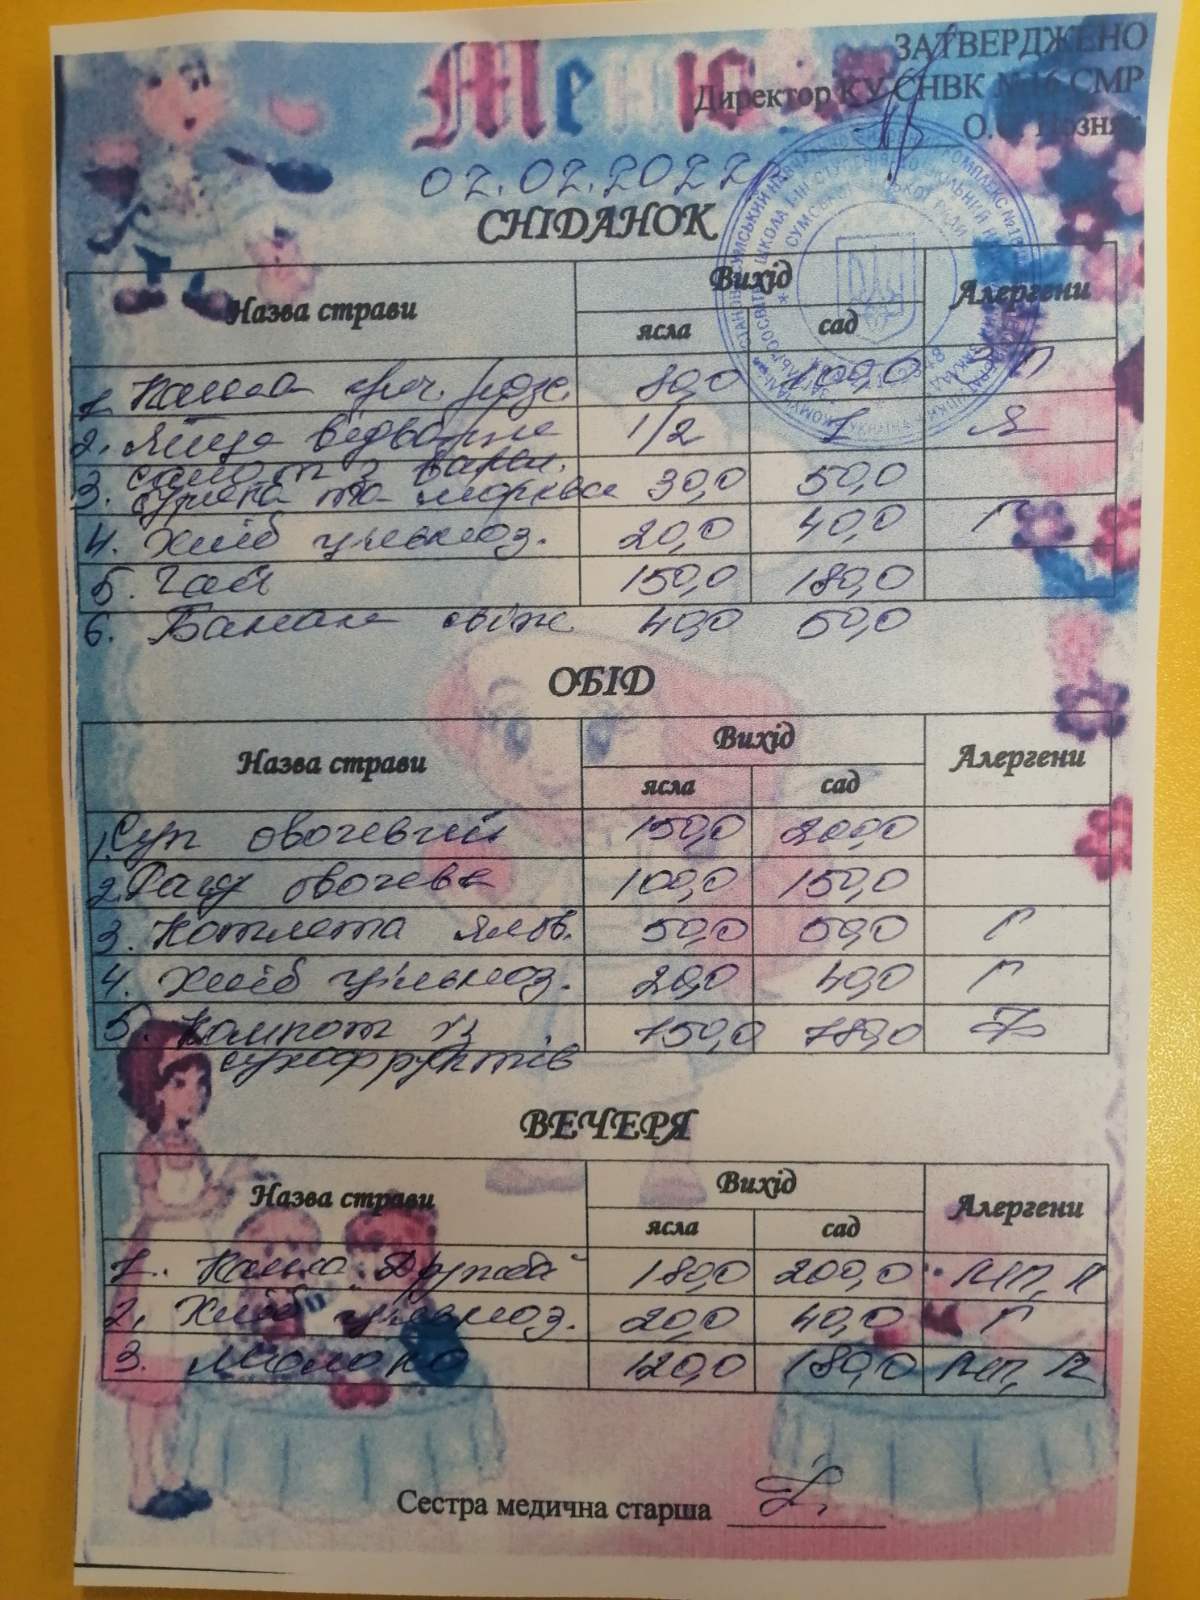 Меню
ЗАТВЕРДЖЕНО
Директор КУ СНВК №16 СМР
02.02.2022
СНІДАНОК
Назва страви Вихід Алергени
ясла сад
1. Каша греч. розс. 80,0 100,0 МП
2. Яйце відварне 1/2 1 Я
3. салат з варен. буряка та моркви 30,0 50,0
4. Хліб цільноз. 20,0 40,0 Г
5. Чай 150,0 180,0
6. Банан свіж 40,0 50,0
ОБІД
Назва страви Вихід Алергени
ясла сад
1. Суп овочевий 150,0 200,0
2. Рагу овочеве 100,0 150,0
3. Котлета ялов. 50,0 50,0 Г
4. Хліб цільноз. 20,0 40,0 Г
5. Компот із 150,0 180,0
сухофруктів
ВЕЧЕРЯ
Назва страви Вихід Алергени
ясла сад
1. Каша "Дружба" 180,0 200,0 МП, Л
2. Хліб цільноз. 20,0 40,0 Г
3. Молоко 120,0 180,0 МП, Л
Сестра медична старша